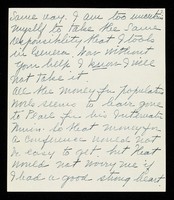 same way. I am too uncertain
myself to take the same
responsibility that I took
in Geneva. Nor without
your help I know I will
not take it.
All the money for population
work seems to have gone
to Pearl for his Internat.
Union so that money for
a Conference would not
be easy to get but that
would not worry me if
I had a good strong heart